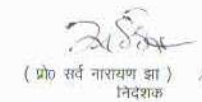 ( प्रो० सर्व नारायण झा )
निदेशक